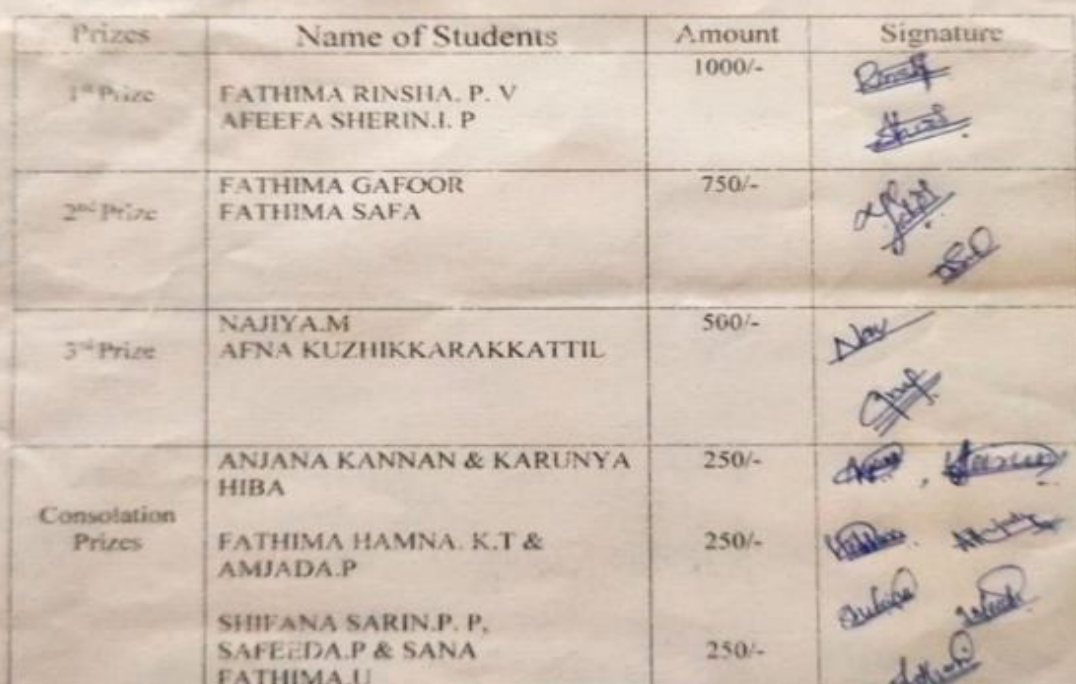 Prizes Name of Students Amount Signature
1st Prize FATHIMA RINSHA. P. V 1000/-
AFEEFA SHERIN.I. P
2nd Prize FATHIMA GAFOOR 750/-
FATHIMA SAFA
3rd Prize NAJIYA.M 500/-
AFNA KUZHIKKARAKKATTIL
Consolation Prizes
ANJANA KANNAN & KARUNYA 250/-
HIBA
FATHIMA HAMNA. K.T & 250/-
AMJADA.P
SHIFANA SARIN.P. P,
SAFEEDA.P & SANA 250/-
FATHIMA.U